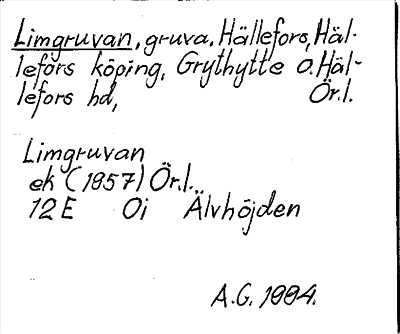 Limgruvan, gruva, Hällefors, Häl-
lefors köping, Grythytte o. Häl-
lefors hd, Ör.l.
Limgruvan
ek (1957) Ör.l.
12E 0i Älvhöjden
A.G. 1994.